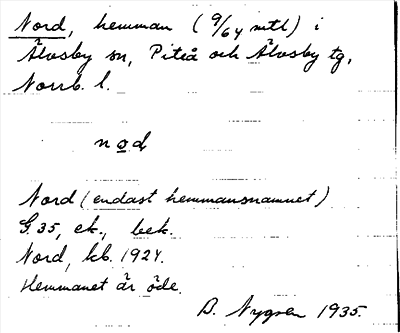 Nord, hemman (9/64 mtl) i
Älvsby sn, Piteå och Älvsby tg,
Norrb. l.
nọd
Nord (endast hemmansnamnet)
G. 35, ek., bek.
Nord, kb. 1924.
Hemmanet är öde.
D. Nygren 1935.